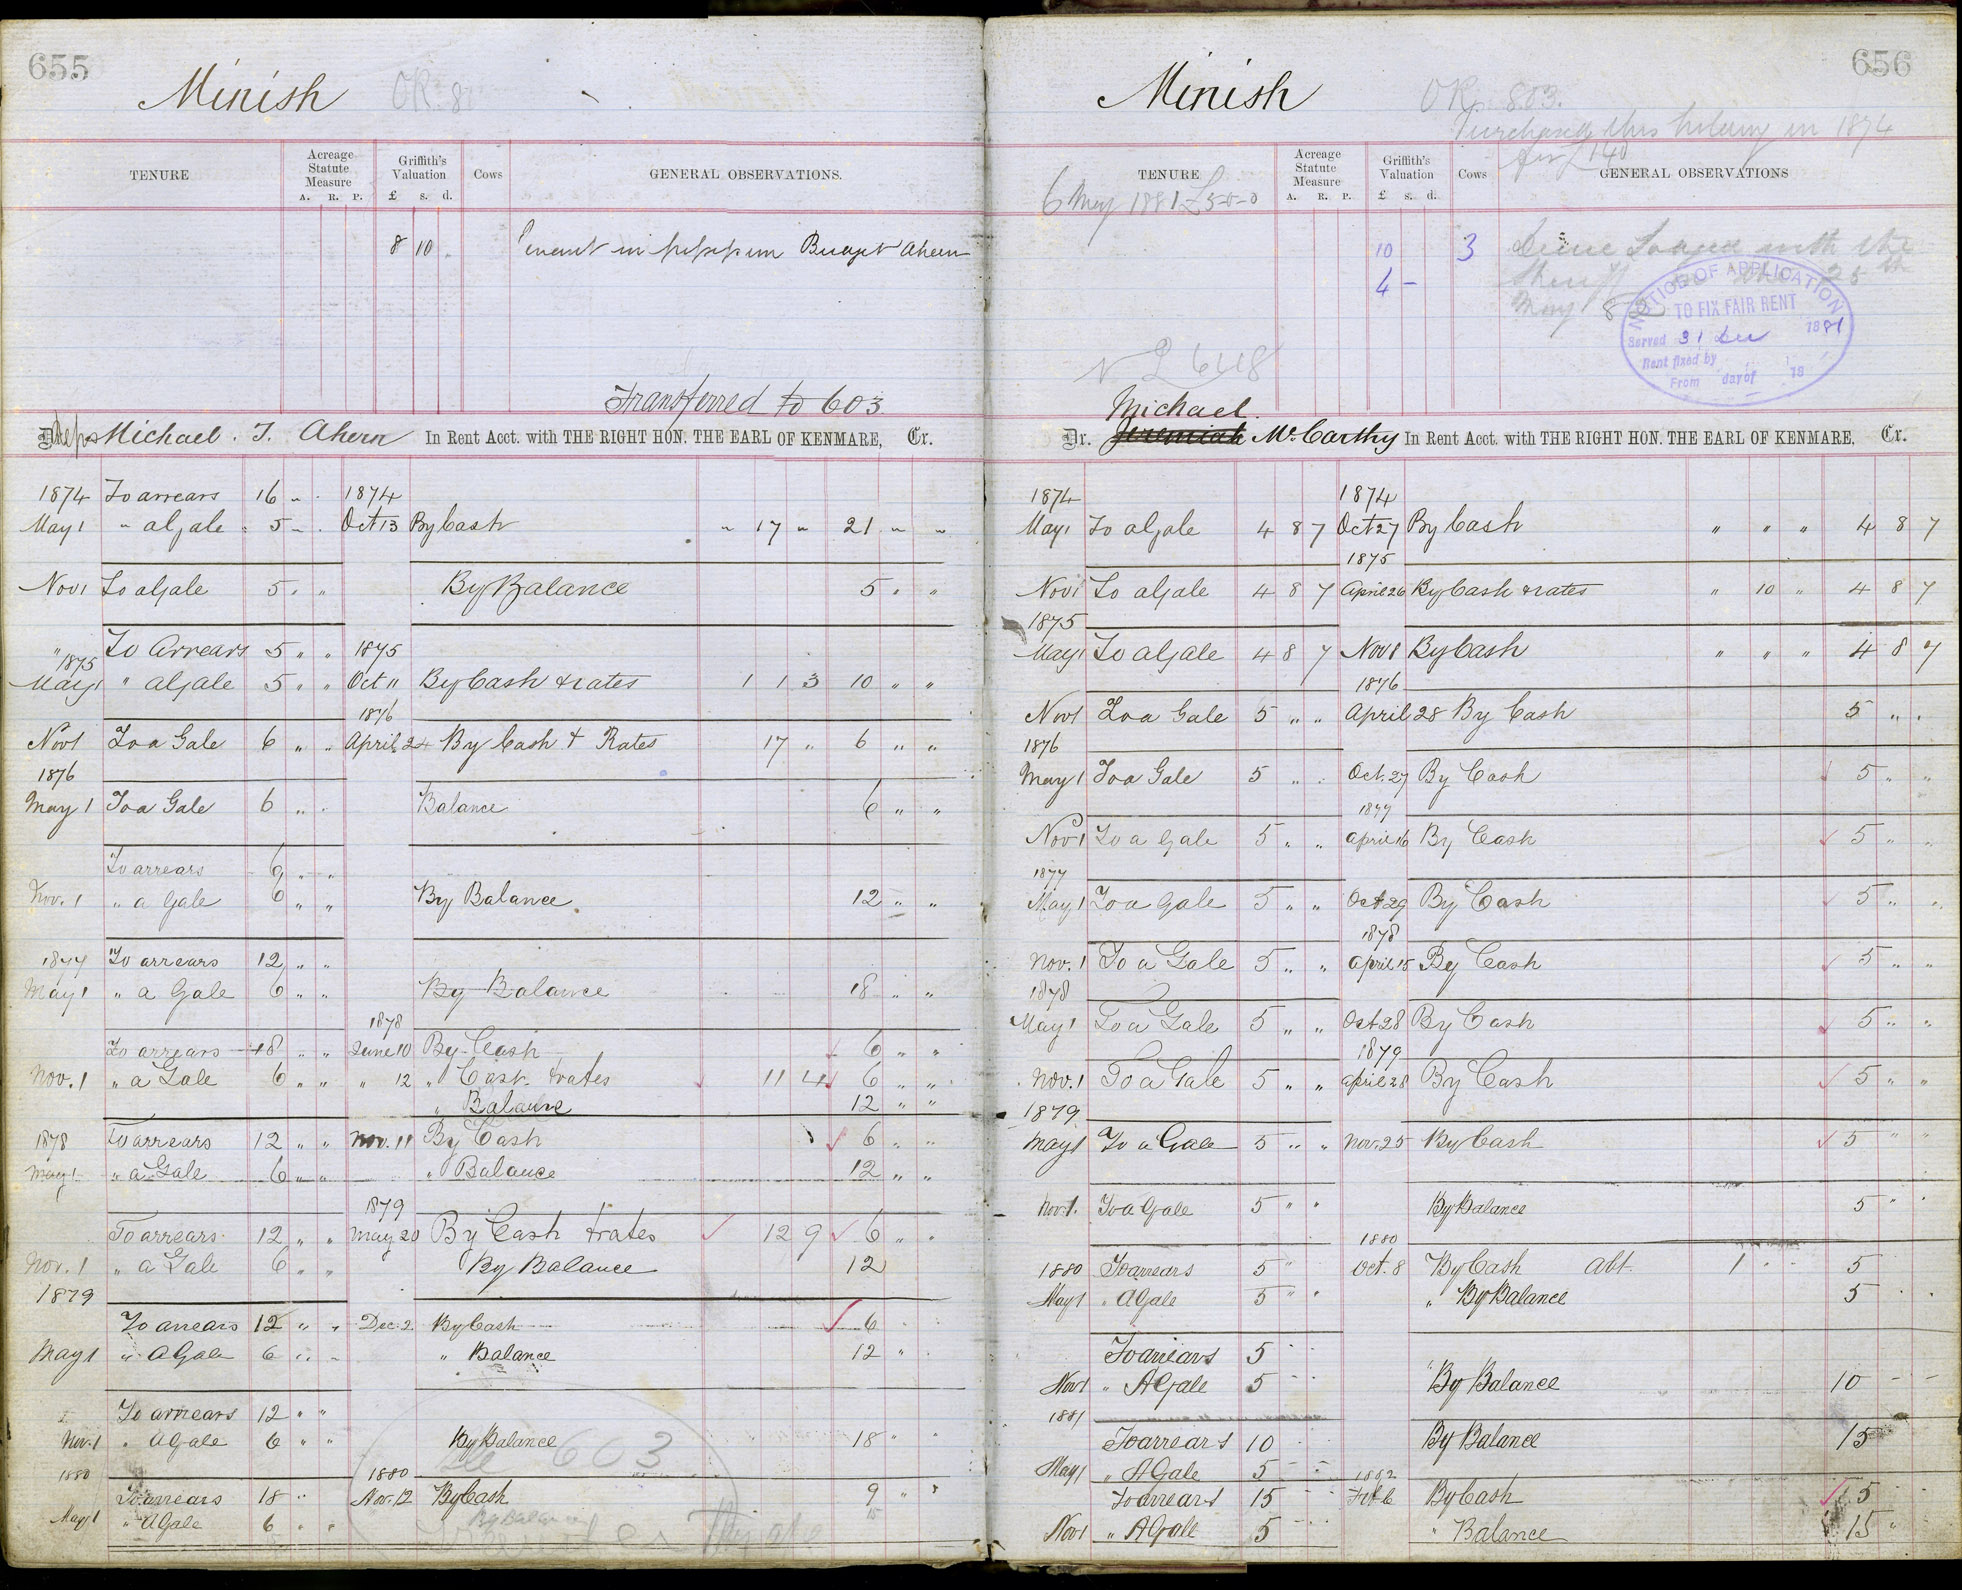 655
Minish
OR. 81
TENURE
Acreage Statute Measure
A. R. P.
Griffith's Valuation
£ s. d.
Cows
GENERAL OBSERVATIONS.
8 10 .
Tenant in possession Bridget Ahern
Transferred to 603
Dr. Reps Michael . T. Ahern In Rent Acct. with THE RIGHT HON. THE EARL OF KENMARE, Cr.
1874 To arrears 16 " . 1874
May 1 " a Gale 5 " . Oct 13 By Cash " 17 " 21 " "
Nov 1 To a Gale 5 " " By Balance 5 " "
" To Arrears 5 " " 1875
1875
May 1 " a Gale 5 " " Oct 11 By Cash & rates 1 1 3 10 " "
1876
Nov 1 To a Gale 6 " " April 24 By Cash & Rates 17 " 6 " "
1876
May 1 To a Gale 6 " . Balance 6 " "
To arrears 6 " "
Nov. 1 " a Gale 6 " " By Balance 12 " "
1877 To arrears 12 " "
May 1 " a Gale 6 " " By Balance 18 " "
1878
To arrears 18 " " June 10 By Cash 6 " "
Nov. 1 " a Gale 6 " " " 12 " Cash & rates 11 4 6 " "
" Balance 12 " "
1878 To arrears 12 " " Nov. 11 By Cash 6 " "
May 1 " a Gale 6 " " " Balance 12 " "
1879
To arrears 12 " " May 20 By Cash & rates 12 9 6 " "
Nov. 1 " a Gale 6 " " By Balance 12
1879
To arrears 12 " " Dec. 2 By Cash 6
May 1 " A Gale 6 " " " Balance 12 "
To arrears 12 " "
Nov. 1 " A Gale 6 " " By Balance 18 " "
See 603
1880 1880
To arrears 18 " Nov. 12 By Cash 9 " "
May 1 " A Gale 6 " " By Balance 15
656
Minish
OR. 803.
Purchased this holding in 1874
for £140
TENURE
Acreage Statute Measure
A. R. P.
Griffith's Valuation
£ s. d.
Cows
GENERAL OBSERVATIONS
6 May 1881 £5-0-0
10 3
4 –
Sheriff 25th
May 82
NOTICE OF APPLICATION
TO FIX FAIR RENT
Served 31 Dec 1881
Rent fixed by
From day of 18
Michael
Dr. Jeremiah McCarthy In Rent Acct. with THE RIGHT HON. THE EARL OF KENMARE, Cr.
1874 1874
May 1 To a Gale 4 8 7 Oct 27 By Cash " " " 4 8 7
1875
Nov 1 To a Gale 4 8 7 April 26 By Cash & rates " 10 " 4 8 7
1875
May 1 To a Gale 4 8 7 Nov 8 By Cash " " " 4 8 7
1876
Nov 1 To a Gale 5 " " April 28 By Cash 5 " "
1876
May 1 To a Gale 5 " " Oct. 27 By Cash 5 " "
1877
Nov 1 To a Gale 5 " " April 16 By Cash 5 " "
1877
May 1 To a Gale 5 " " Oct 29 By Cash 5 " "
1878
Nov. 1 To a Gale 5 " " April 15 By Cash 5 " "
1878
May 1 To a Gale 5 " " Oct 28 By Cash 5 " "
1879
Nov. 1 To a Gale 5 " " April 28 By Cash 5 " "
1879
May 1 To a Gale 5 " " Nov. 25 By Cash 5 " "
Nov. 1. To a Gale 5 " " By Balance 5 " "
1880
1880 To arrears 5 " Oct. 8 By Cash Abt. 1 " " 5
May 1 " A Gale 5 " " " By Balance 5
To arrears 5
Nov 1 " A Gale 5 By Balance 10 – –
1881
To arrears 10 By Balance 15
May 1 " A Gale 5 1882
To arrears 15 Feb 6 By Cash 5
Nov 1 " A Gale 5 " Balance 15 "